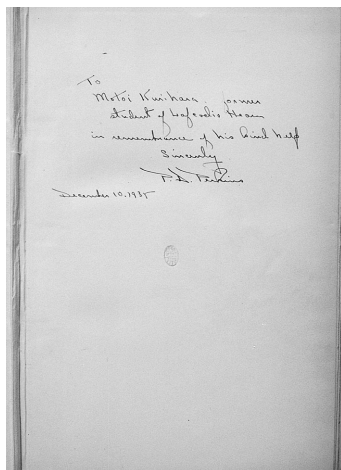 To
Motoi Kurihara, former
student of Lafcadio Hearn
in remembrance of his kind help
Sincerely
P. D. Perkins
December 10, 1935